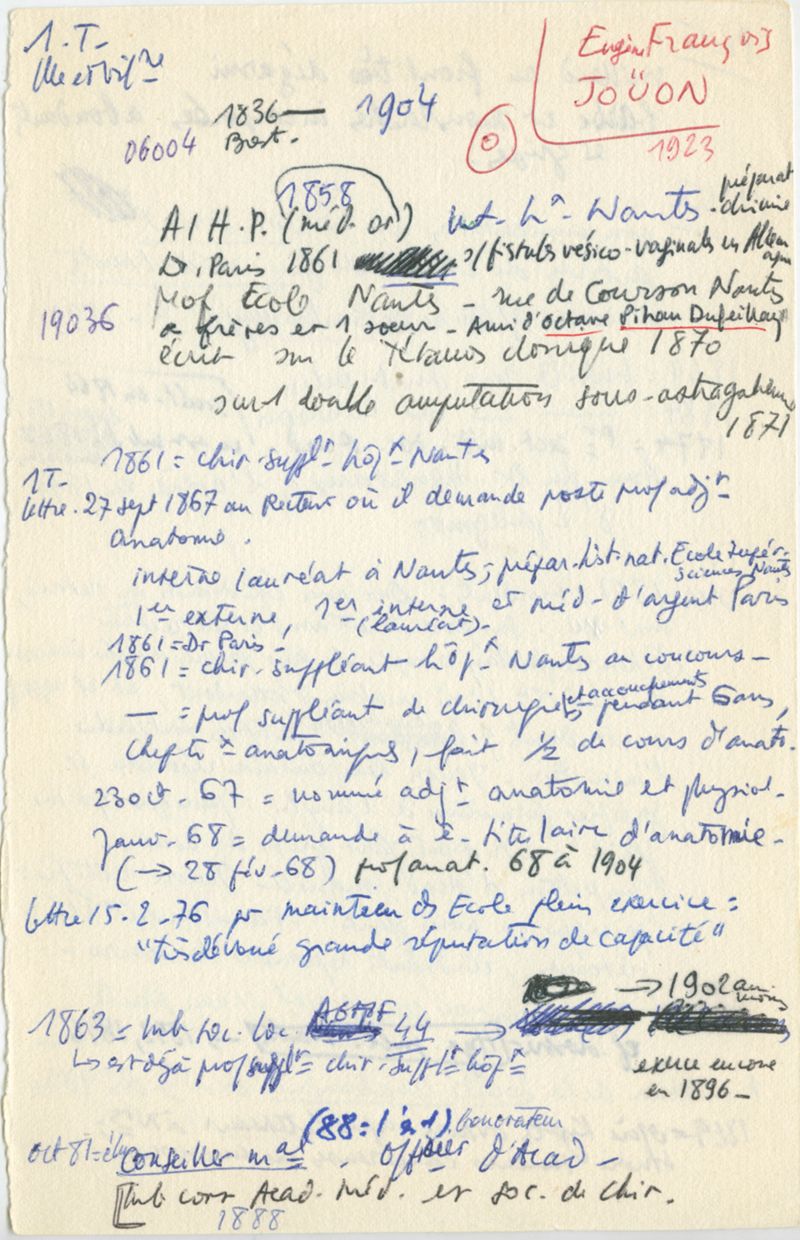 1.T-
Eugène François
JOÜON
1923
1836 — 1904
06004
Brest.
1858
préparat
chimie
AIH.P. (méd. or) int. hx Nantes.
Dr. Paris 1861 s/fistules vésico-vaginales en Allemagne
Prof École Nantes - rue de Courson Nantes
19036
2 frères et 1 soeur - Ami d'Octave Pihan Dufeillay
écrit sur le Tétanos 1870
sur 1 double amputation sous-astragalienne
1871
1861 = chir. supplt hôpx Nantes
1T-
lettre. 27 sept 1867 au Recteur où il demande poste prof adjt
anatomie.
interne lauréat à Nantes, prépar. hist. nat. Ecole supér.
Sciences Nantes
1er externe, 1er interne et méd - d'argent Paris
(lauréat)-
1861 = Dr Paris-
1861 = chir. suppléant hôpx Nantes au concours -
— = prof suppléant de chirurgie et accouchements pendant 6 ans,
chef tx anatomiques, fait 1/2 de cours d'anato.
23 oct. 67 = nommé adjt anatomie et physiol-
Janv. 68 = demande à ê. titulaire d'anatomie-
(→ 28 fév. 68) prof anat. 68 à 1904
lettre 15.2.76 pr maintien ds Ecole plein exercice =
"très dévoué grande réputation de capacité"
→ 1902 au
moins
1863 = mb soc. loc. 44 →
↳ est déjà prof supplt = chir. supplt hôpx
exerce encore
en 1896-
(88 = l'é 1) honorateur
oct 81 = élu Conseiller mal. officier d'Acad -
mb corr Acad. Méd. et soc. de chir.
1888